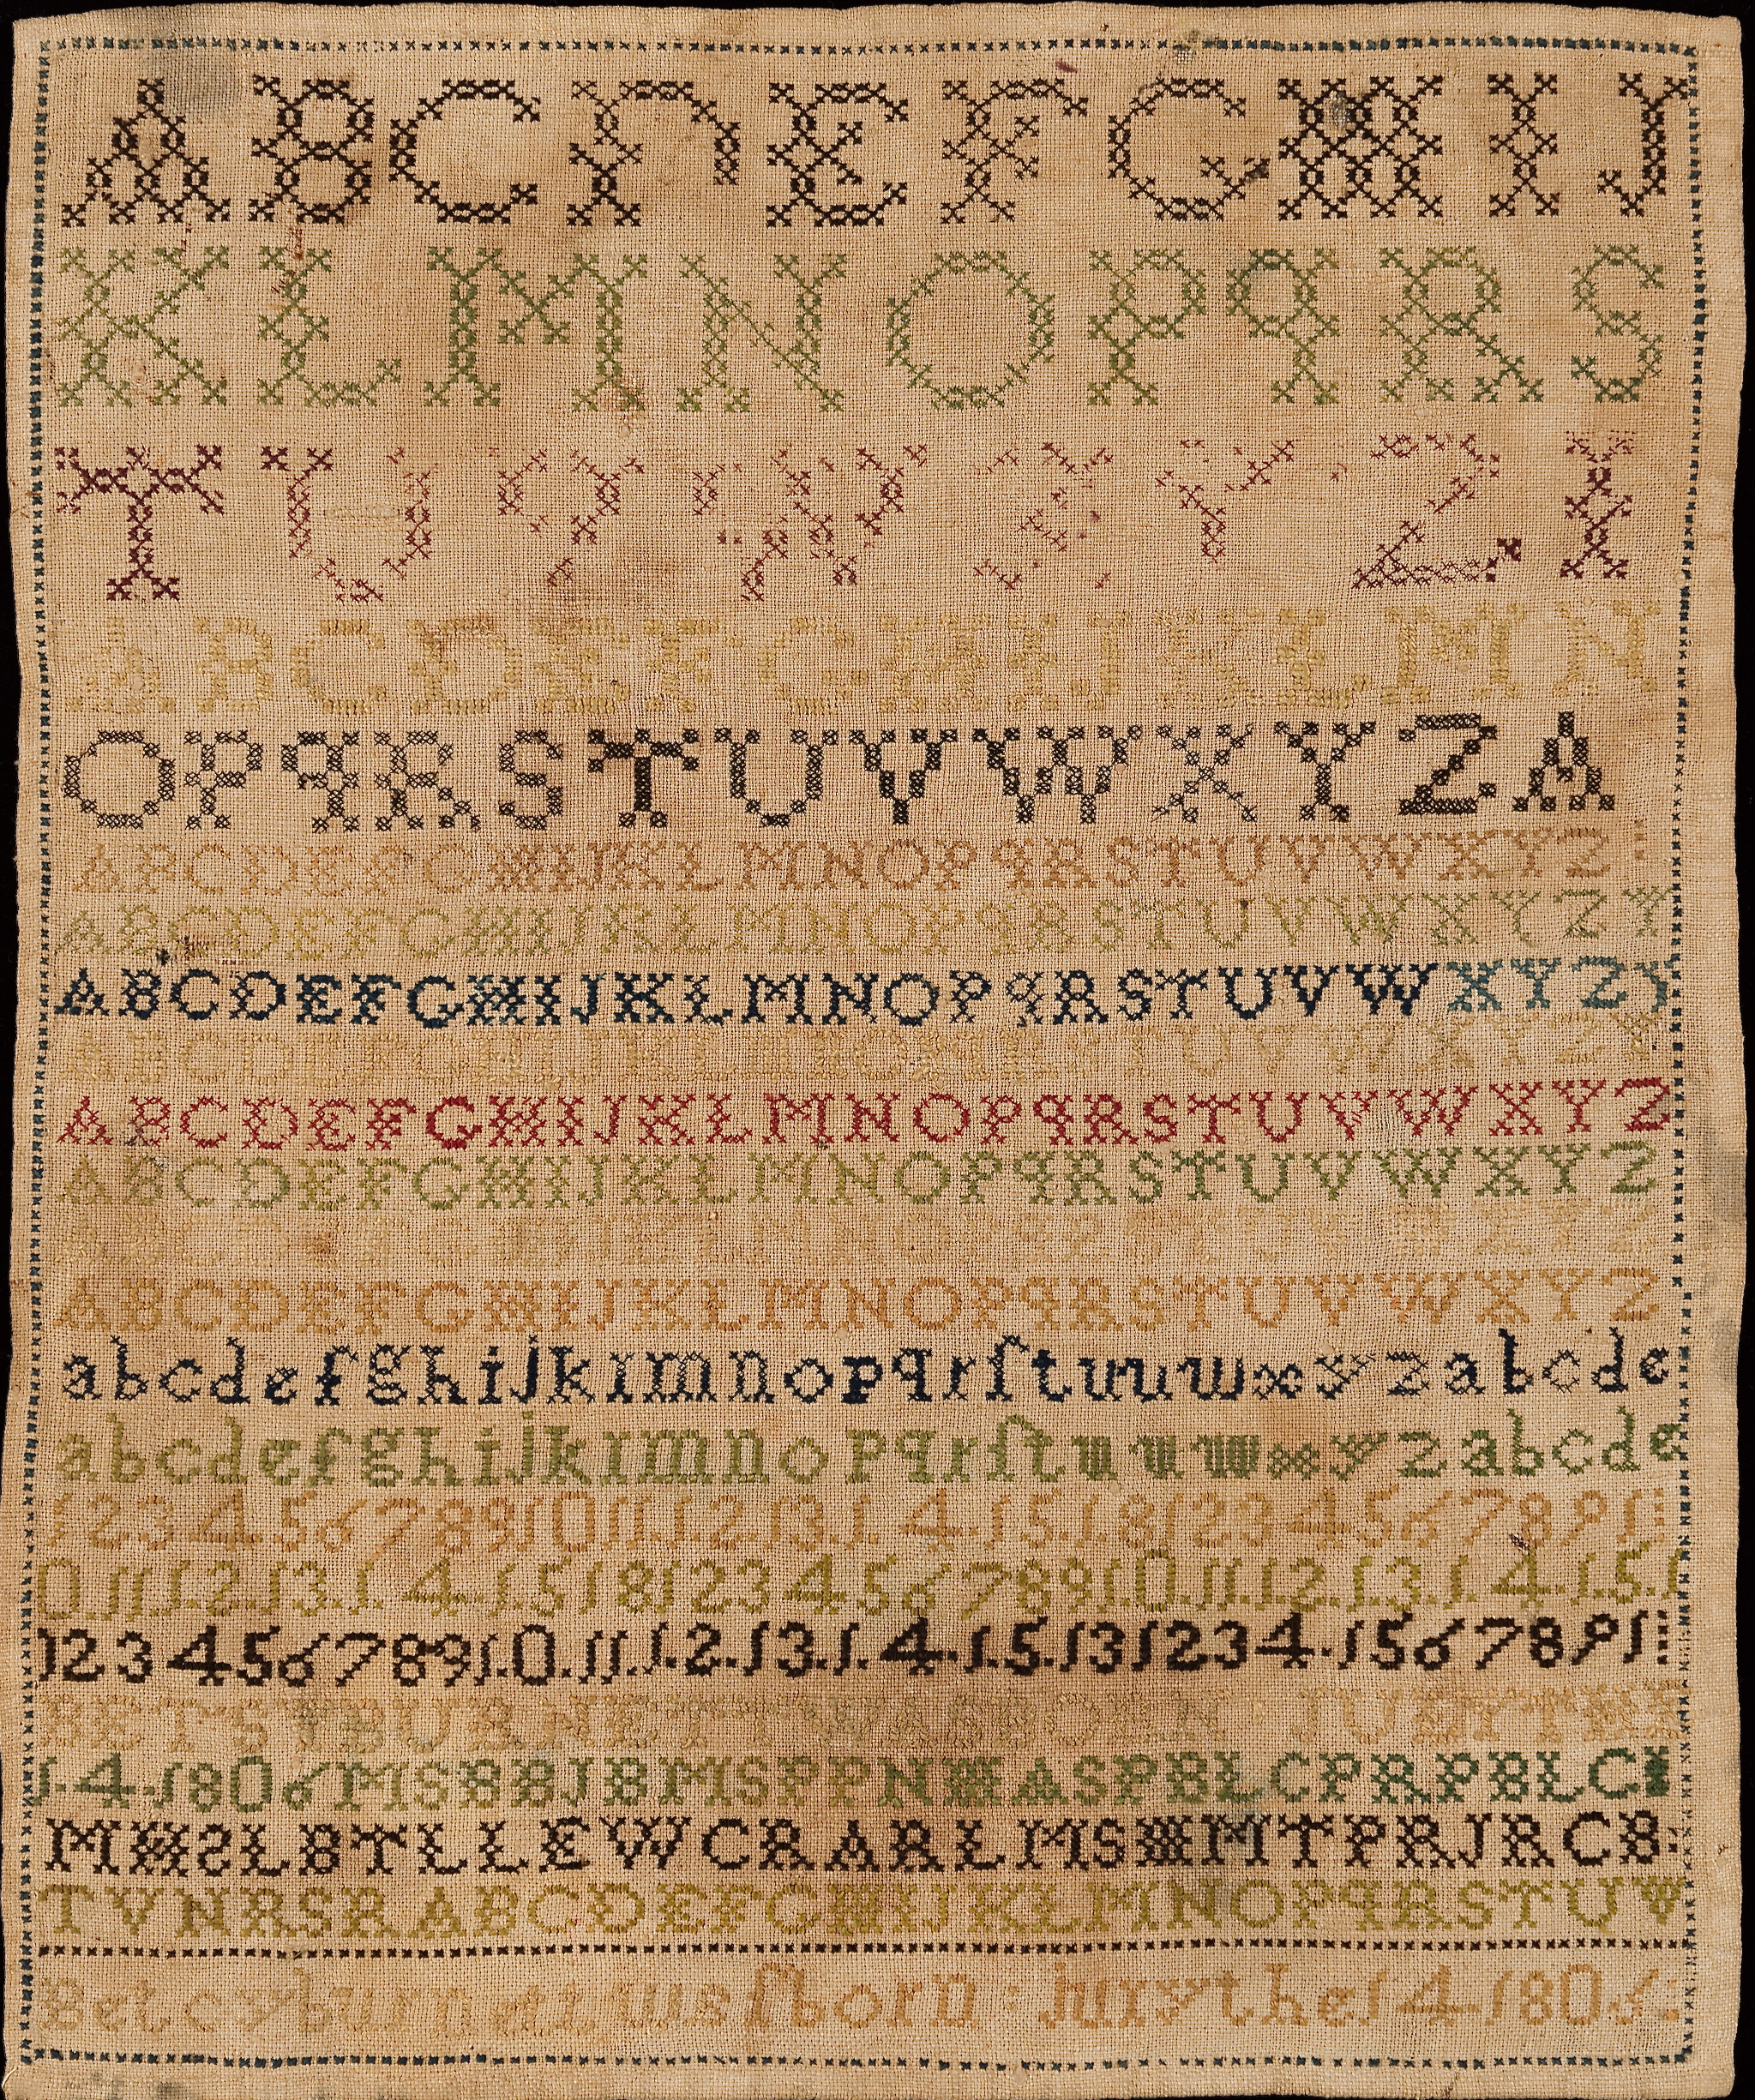 A B C D E F G H I J
K L M N O P q R S
T U V W X Y Z I
A B C D E F G H I J K L M N
O P q R S T U V W X Y Z A
A B C D E F G H I J K L M N O P q R S T U V W X Y Z
A B C D E F G H I J K L M N O P q R S T U V W X Y Z Y
A B C D E F G H I J K L M N O P q R S T U V W X Y Z
A B C D E F G H I J K L M N O P q R S T U V W X Y Z Y
A B C D E F G H I J K L M N O P q R S T U V W X Y Z
A B C D E F G H I J K L M N O P q R S T U V W X Y Z
A B C D E F G H I J K L M N O P q R S T U V W X Y Z
A B C D E F G H I J K L M N O P q R S T U V W X Y Z
a b c d e f g h i j k l m n o p q r ſ t u u w x y z a b c d e
a b c d e f g h i j k l m n o p q r ſ t u u w x y z a b c d e
1 2 3 4 5 6 7 8 9 10 11 1.2.13.1.4.15.1.8 1 2 3 4 5 6 7 8 9 1
0.11.1.2.13.1.4.1.5 1 8 1 2 3 4 5 6 7 8 9 1.0.11.1.2.13.1.4.1.5.1
1 2 3 4 5 6 7 8 9 1.0.11.1.2.13.1.4.1.5.13 1 2 3 4.1 5 6 7 8 9 1
BETSY BURNETT WAS BORN JULY THE
1.4.1806 M S B B J B M S P P N H A S P B L C P R P B L C
M H S L B T L L E W C R A R L M S H M T P R J R C B:
T V N R S R A B C D E F G H I J K L M N O P q R S T U V
Betcy burnett was ſborn : july the 14 1806: